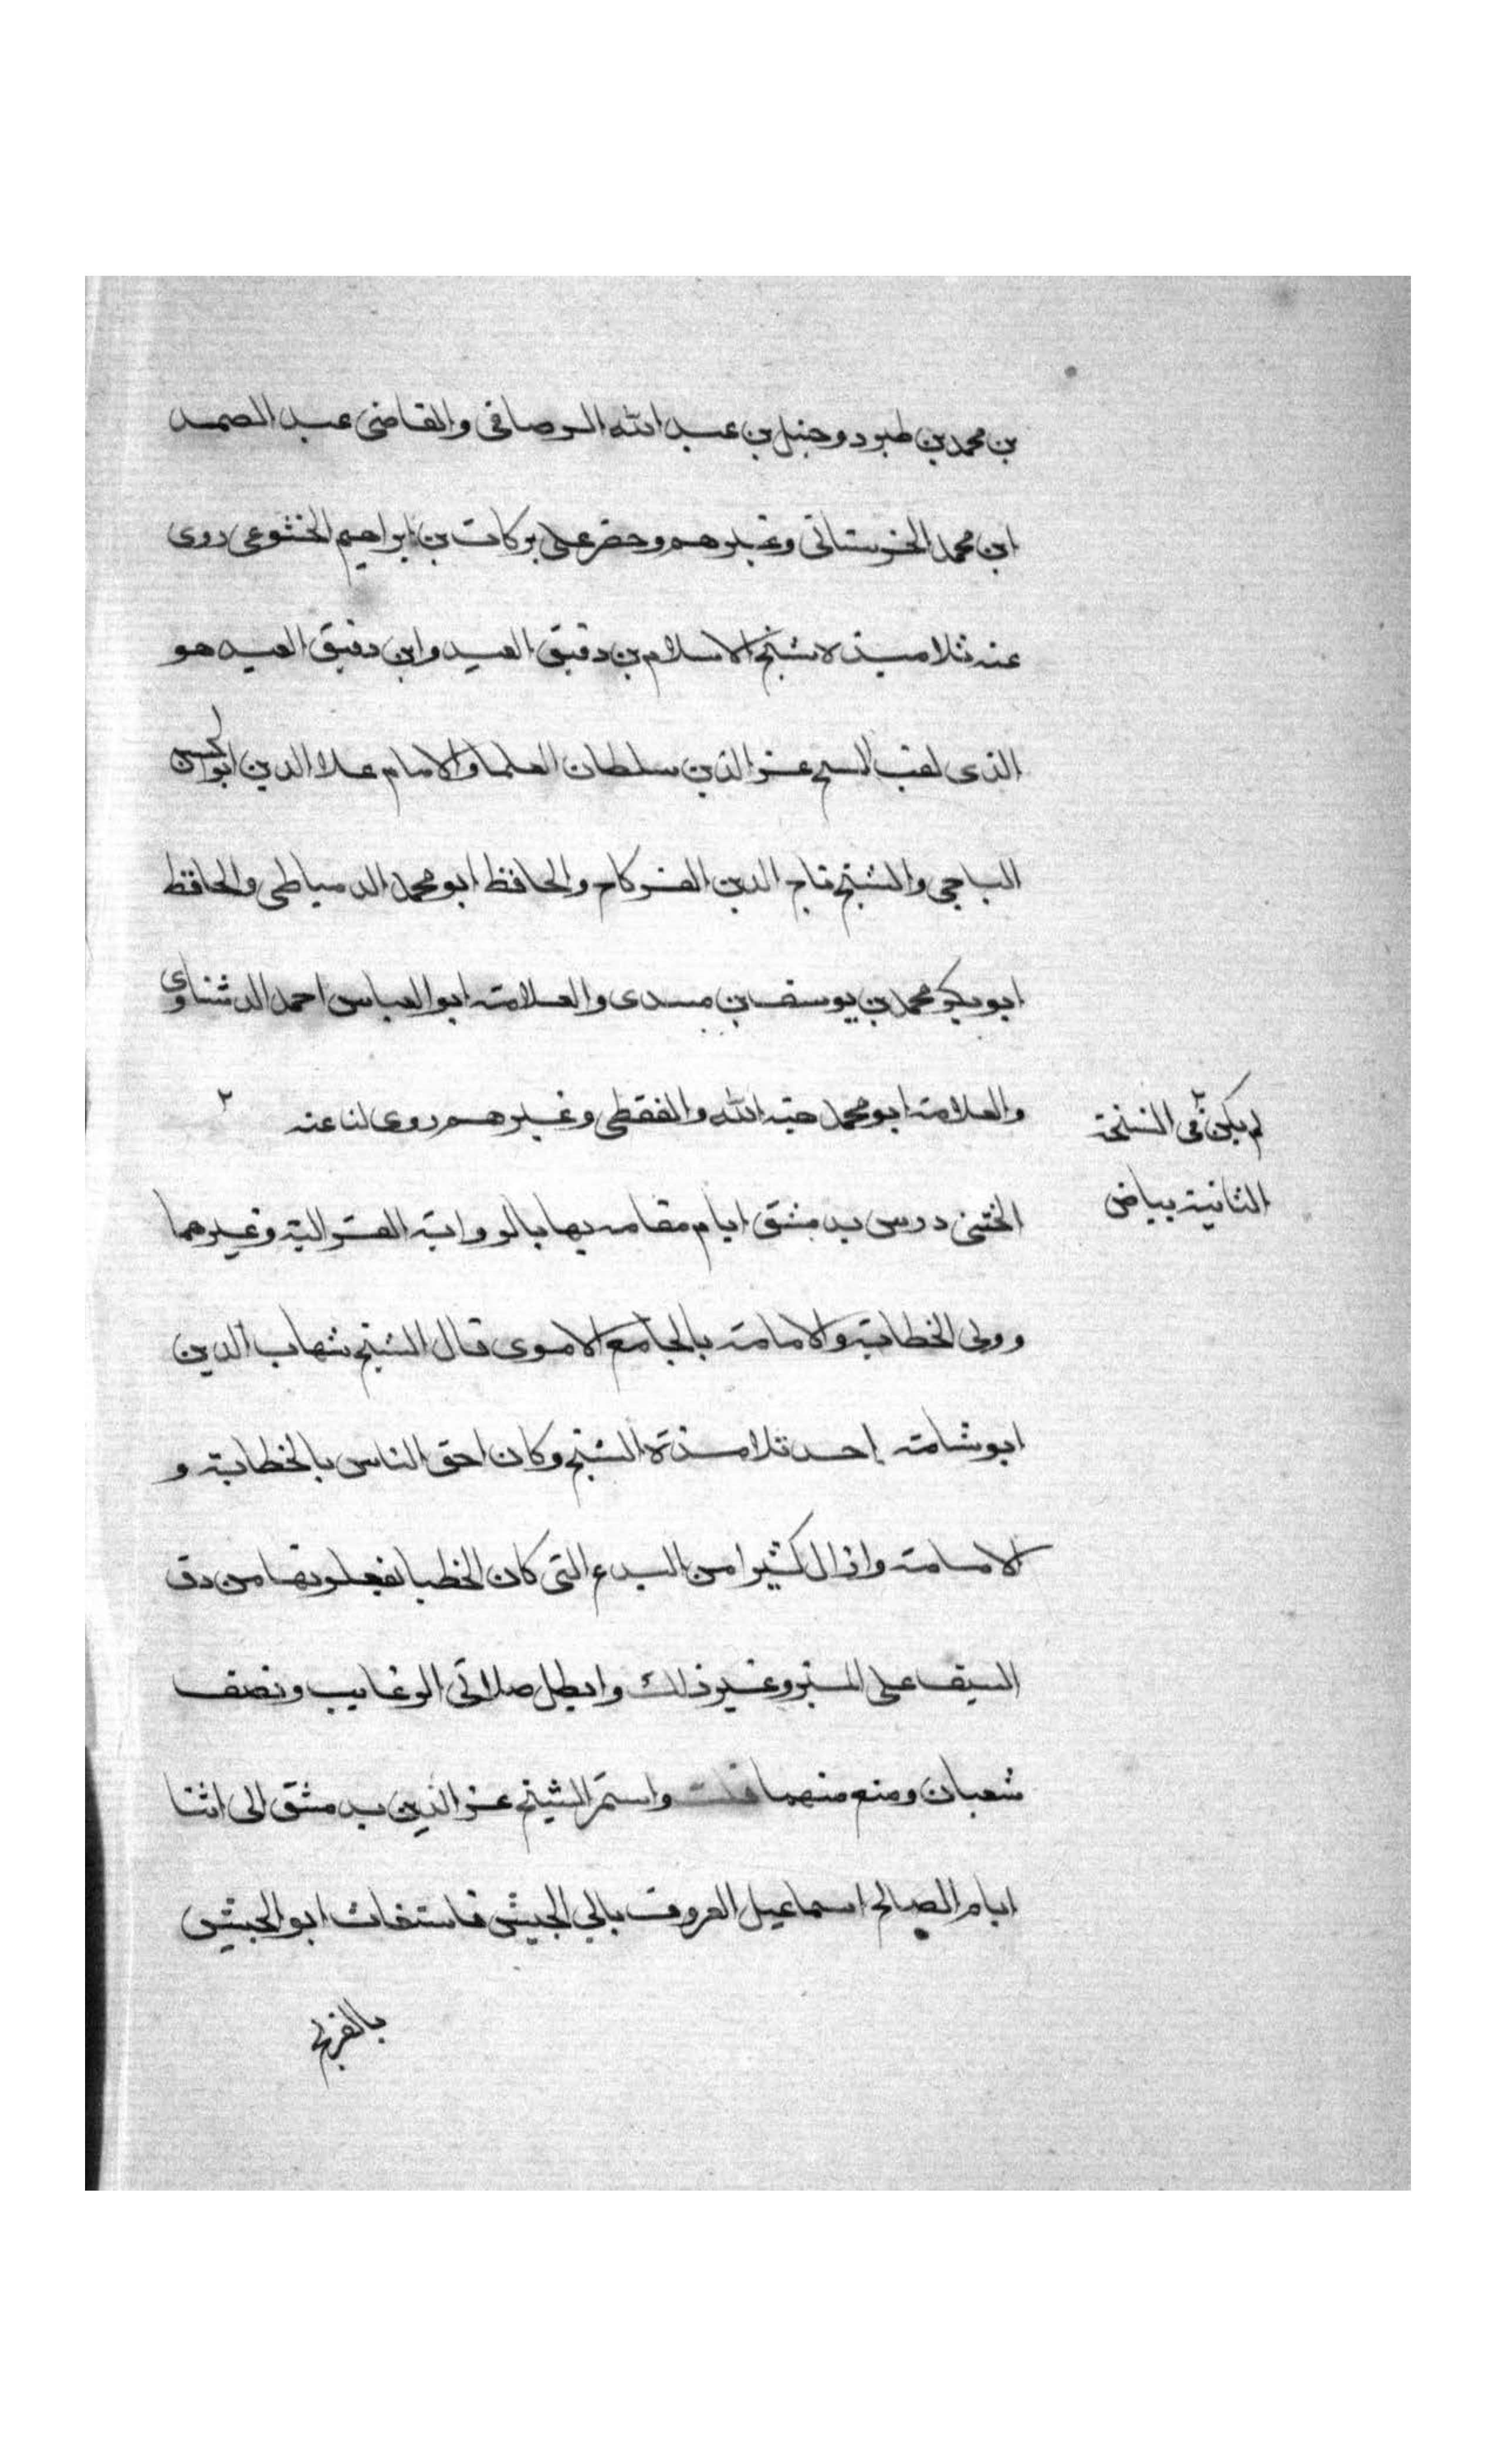 بن محمد بن طبرد وحنبل بن عبد الله الرصافى والقاضى عبد الصمد
ابن محمد الخرستانى وغيرهم وحضر على بركات بن ابراهيم الخشوعى روى
عنه تلاميذه لاشيخ الاسلام بن دقيق العيد وابن دقيق العيد هو
الذى لقب الشيخ عز الدين سلطان العلما والامام علا الدين ابو الحسن
الباجى والشيخ تاج الدين الفركاح والحافظ ابو محمد الدمياطى والحافظ
ابو بكر محمد بن يوسف بن مسدى والعلامة ابو العباس احمد الدشناوى
والعلامة ابو محمد هبة الله والقفطى وغيرهم روى لنا عنه ٢
الختنى درس بدمشق ايام مقامه بها بالرواية الغزالية وغيرهما
وولى الخطابة والامامة بالجامع الاموى قال الشيخ شهاب الدين
ابو شامة إحد تلامذة الشيخ وكان احق الناس بالخطابة و
الامامة وازال كثيرا من البدع التى كان الخطبا يفعلونها من دق
السيف على المنبر وغير ذلك وابطل صلاتى الرغايب ونصف
شعبان ومنع منهما قلت واستمر الشيخ عز الدين بدمشق الى اثنا
ايام الصالح اسماعيل المعروف بابى الجيش فاستغاث ابو الجيش
بالفرنج
٢ لم يكن فى النسخة
الثانية بياض